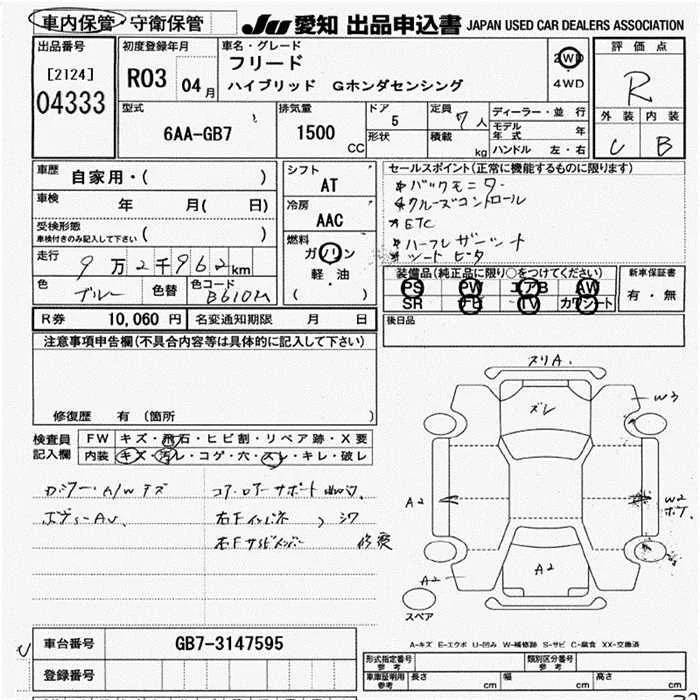 車内保管・守衛保管 JU 愛知 出品申込書 JAPAN USED CAR DEALERS ASSOCIATION
出品番号
[2124]
04333
初度登録年月
R03 04月
車名・グレード
フリード
ハイブリッド Gホンダセンシング
2WD
4WD
評価点
R
外装 内装
C B
型式
6AA-GB7
排気量
1500 CC
ドア
5
形状
定員
7人
積載 kg
ディーラー・並行
モデル年式 年
ハンドル 左・右
車歴
自家用・( )
車検
年 月( 日)
受検形態
車検付きのみ記入して下さい ( )
走行
9万2千962km
色
ブルー
色替
色コード
B610M
シフト
AT
冷房
AAC
燃料
ガソリン
軽・油
( )
セールスポイント(正常に機能するものに限ります)
*バックモニター
*クルーズコントロール
*ETC
*ハーフレザーシート
*シートヒーター
装備品(純正品に限り○をつけてください)
PS PW エアB AW
SR ナビ TV カワシート
新車保証書
有・無
後日品
R券 10,060円 名変通知期限 月 日
注意事項申告欄(不具合内容等は具体的に記入して下さい)
修復歴 有(箇所 )
検査員記入欄
FW キズ・飛石・ヒビ割・リペア跡・X要
内装 キズ・汚レ・コゲ・穴・スレ・キレ・破レ
A/Wキズ
コア・ロアーサポート
右Fインパネ
修変
スリA.
ズレ
W3
A2
W2
A2
A2
スペア
A-キズ E-エクボ U-凹み W-補修跡 S-サビ C-腐食 XX-交換済
車台番号 GB7-3147595
登録番号
型式指定番号 参考
類別区分番号 参考
車庫証明用 参考
長さ cm
幅 cm
高さ cm